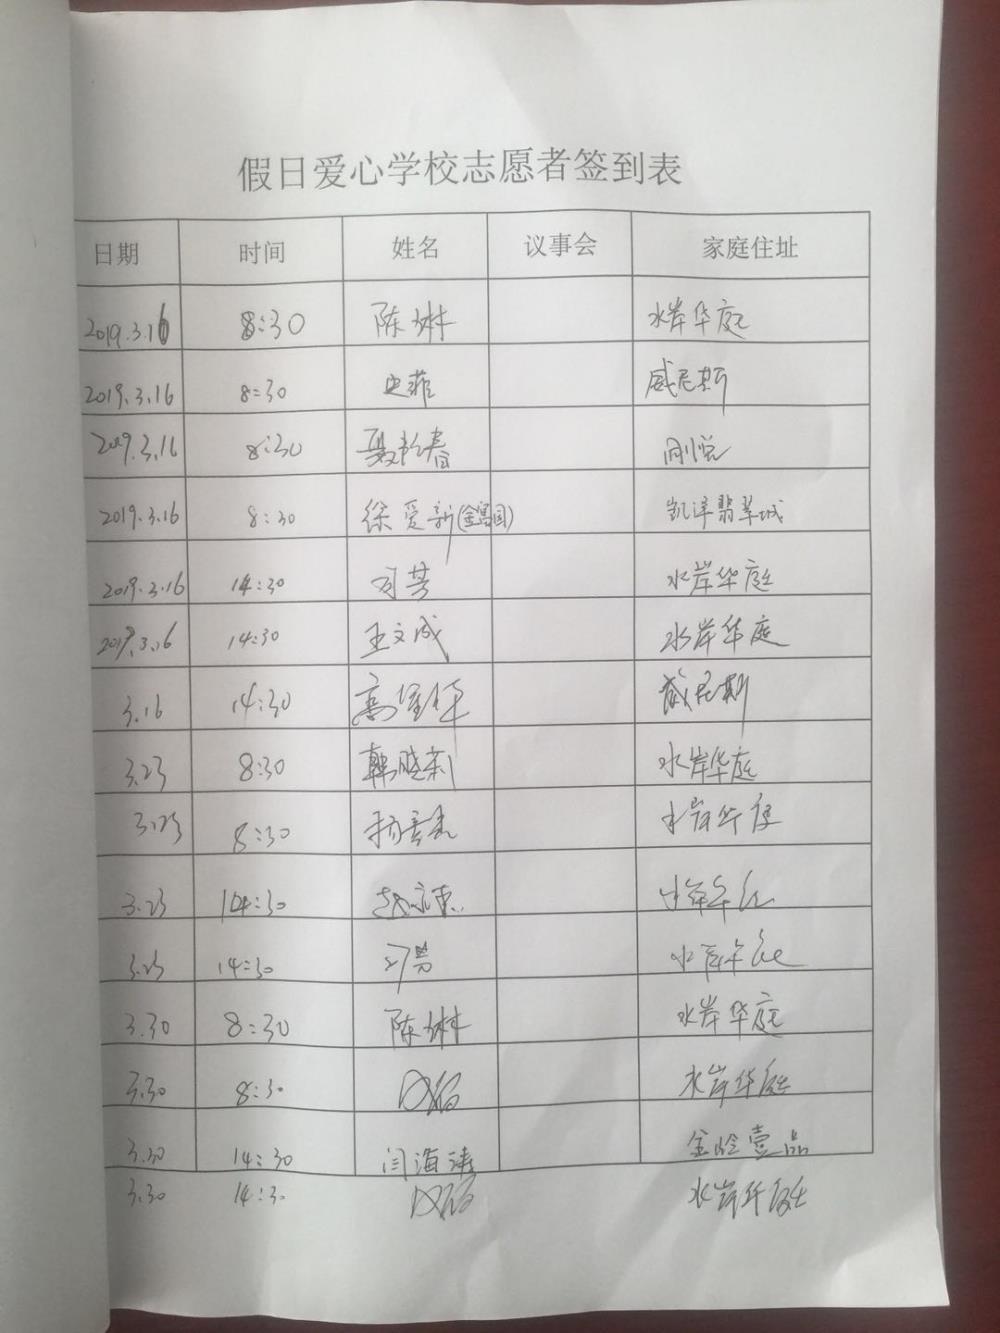 假日爱心学校志愿者签到表
日期 时间 姓名 议事会 家庭住址
2019.3.16 8:30 陈琳 水岸华庭
2019.3.16 8:30 史菲 威尼斯
2019.3.16 8:30 聂长春 刚悦
2019.3.16 8:30 徐爱新(金富园) 凯泽翡翠城
2019.3.16 14:30 刁芳 水岸华庭
2019.3.16 14:30 王文成 水岸华庭
3.16 14:30 威尼斯
3.23 8:30 韩晓莉 水岸华庭
3.23 8:30 水岸华庭
3.23 14:30 赵永东 水岸华庭
3.23 14:30 刁芳 水岸华庭
3.30 8:30 陈琳 水岸华庭
3.30 8:30 水岸华庭
3.30 14:30 闫海涛 金岭壹品
3.30 14:30 水岸华庭